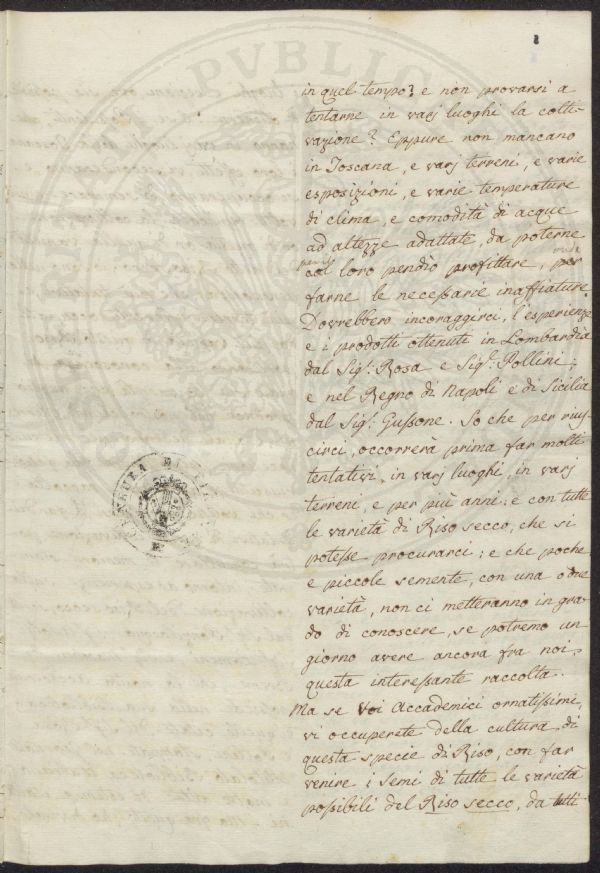 in quel tempo? e non provarsi a
tentarne in varj luoghi la colti-
vazione? Eppure non mancano
in Toscana, e varj terreni, e varie
esposizioni, e varie temperature
di clima, e comodità di acque
ad altezze adattate, da poterne
col loro pendìo profittare, per
farne le necessarie inaffiature.
Dovrebbero incoraggirci, l'esperienze
e i prodotti ottenuti in Lombardia
dal Sig.r Rosa e Sig.r Pollini;
e nel Regno di Napoli e di Sicilia
dal Sig.r Gussone. So che per rius-
circi, occorrerà prima far molti
tentativi, in varj luoghi, in varj
terreni, e per più anni: e con tutte
le varietà di Riso secco, che si
potesse procurarci: e che poche,
e piccole semente, con una o due
varietà, non ci metteranno in gra-
do di conoscere, se potremo un
giorno avere ancora fra noi,
questa interessante raccolta.
Ma se Voi Accademici ornatissimi,
vi occuperete della cultura di
questa specie di Riso, con far
venire i semi di tutte le varietà
possibili del Riso secco, da tutti
PVBLIC